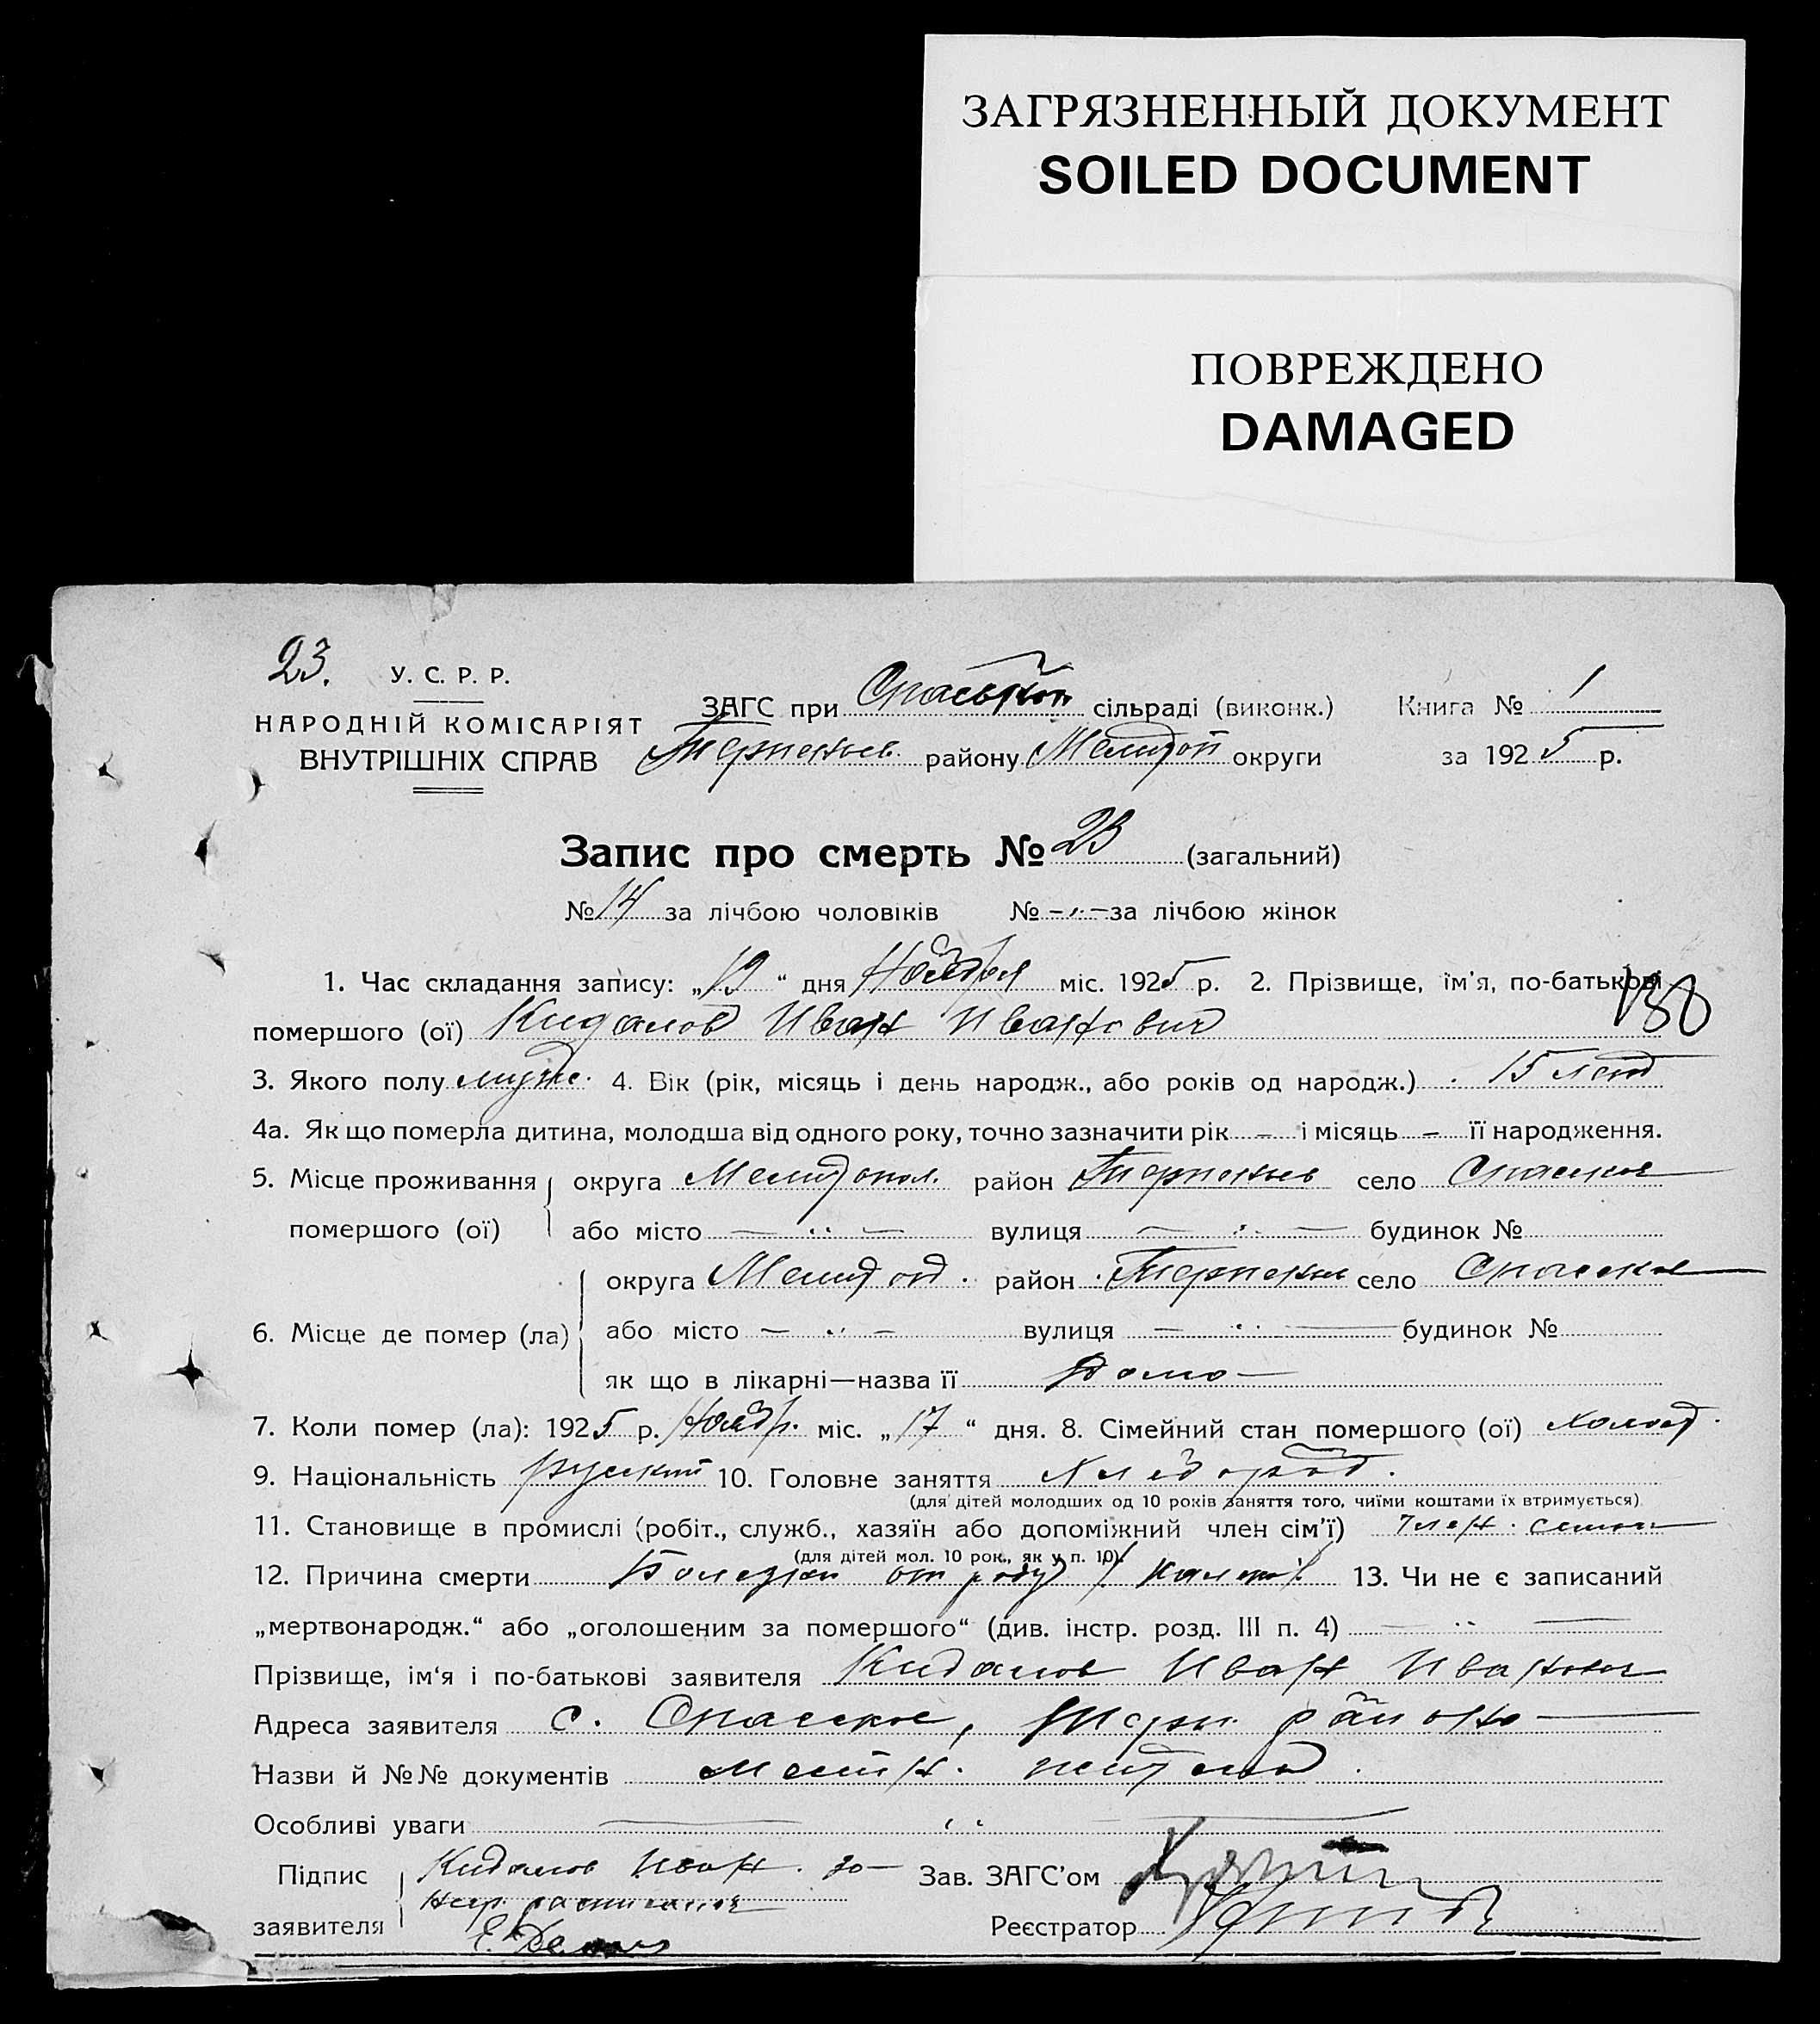 ЗАГРЯЗНЕННЫЙ ДОКУМЕНТ
SOILED DOCUMENT
ПОВРЕЖДЕНО
DAMAGED
23.
У. С. Р. Р.
НАРОДНІЙ КОМІСАРІЯТ
ВНУТРІШНІХ СПРАВ
ЗАГС при Спаській сільраді (виконк.) Книга № 1
Терпеньев. району Мелитоп округи за 1925 р.
Запис про смерть № 23 (загальний)
№ 14 за лічбою чоловіків № - " - за лічбою жінок
1. Час складання запису: „19“ дня Ноября міс. 1925 р. 2. Прізвище, ім'я, по-батькові
138
помершого (ої) Кидалов Иван Иванович
3. Якого полу мужс. 4. Вік (рік, місяць і день народж., або років од народж.) 15 лет
4а. Як що померла дитина, молодша від одного року, точно зазначити рік – і місяць – її народження.
5. Місце проживання округа Мелитопол. район Терпеньев село Спаское
помершого (ої) або місто — " — вулиця — " — будинок №
округа Мелитоп. район Терпеньев село Спаское
6. Місце де помер (ла) або місто — " — вулиця — " — будинок №
як що в лікарні—назва її Дома
7. Коли помер (ла): 1925 р. Ноябр. міс. „17“ дня. 8. Сімейний стан помершого (ої) холост.
9. Національність руский 10. Головне заняття Хлебороб.
(для дітей молодших од 10 років заняття того, чиїми коштами їх втримується)
11. Становище в промислі (робіт., служб., хазяїн або допоміжний член сім'ї) член. семьи
(для дітей мол. 10 рок., як у п. 10)
12. Причина смерти Болезни от роду / Калека / 13. Чи не є записаний
„мертвонародж.“ або „оголошеним за помершого“ (див. інстр. розд. III п. 4) — " —
Прізвище, ім'я і по-батькові заявителя Кидалов Иван
Адреса заявителя с. Спаское, Терп. район
Назви й №№ документів местн. житель.
Особливі уваги — " —
Підпис Кидалов Иван. за Зав. ЗАГС'ом
негр. расписался
заявителя Реєстратор